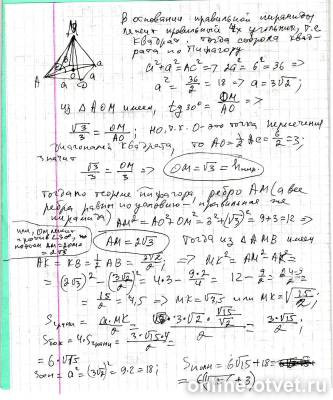 В основании правильной пирамиды
лежит правильный 4х угольник, т.е
квадрат. Тогда сторона квад-
рата по Пифагору
a²+a²=AC² => 2a²=6²=36 =>
a²=36/2=18 => a=3√2;
из ΔAOM имеем, tg30°=OM/AO =>
√3/3 = OM/AO; но, т.к. O-это точка пересечения
диагоналей квадрата, то AO=½AC=6/2=3;
значит
√3/3 = OM/3 => OM=√3=
Тогда по теореме Пифагора, ребро AM (а все
ребра равны по условию - правильная же
пирамида) AM²=AO²+OM²=3²+(√3)²=9+3=12=>
или, OM лежит
против <30°, то
AM=2√3
Тогда из ΔAMB имеем
2√3
AK=KB=½AB=3√2/2; => MK²=AM²-AK²=
=(2√3)²-(3√2/2)²=4·3-9·2/4=12-9/2=24-9/2
=15/2=7,5 => MK=√7,5 или MK=√15/2;
Sграни=a·MK/2=
=3·√15/2;
Sбок=4·Sграни=
=6·√15
Sосн=a²=(3√2)²=9·2=18;
Sполн=6√15+18=
=6(√15+3)
online-otvet.ru